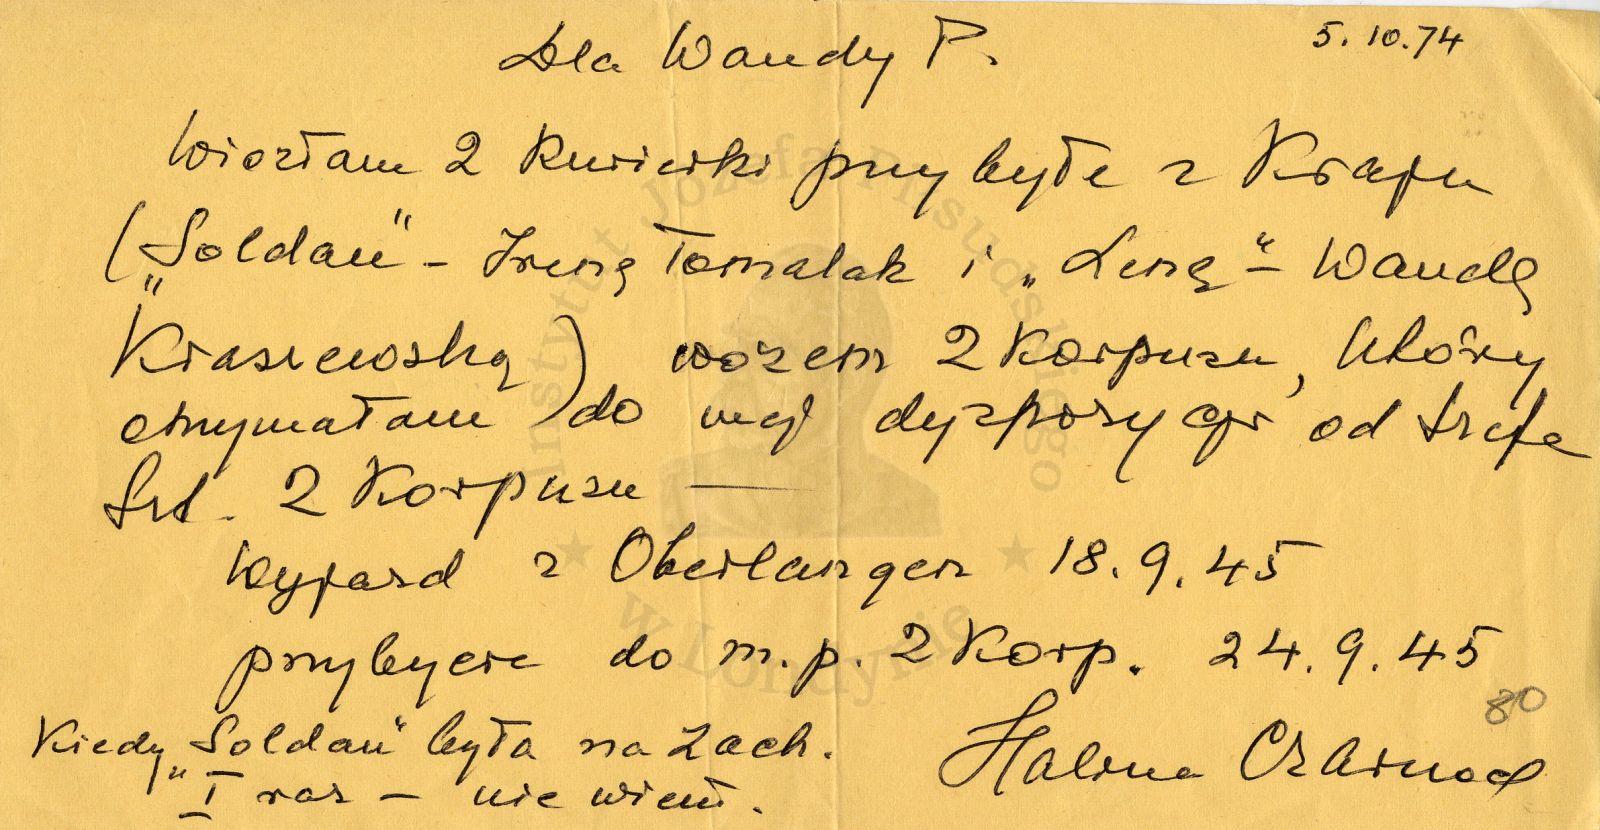 Dla Wandy P.
5.10.74
Wiozłam 2 kurierki przybyłe z Kraju
(„Soldau" – Irenę Tomalak i „Lenę" – Wandę
Kraszewską) wozem 2 Korpusu, który
otrzymałam do mej dyspozycji od Szefa
Szt. 2 Korpusu —
Wyjazd z Oberlangen 18.9.45
przybycie do m.p. 2 Korp. 24.9.45
80
Kiedy „Soldau" była na Zach.
I raz – nie wiem.
Halina Czarnocka
Instytut Józefa Piłsudskiego
w Londynie